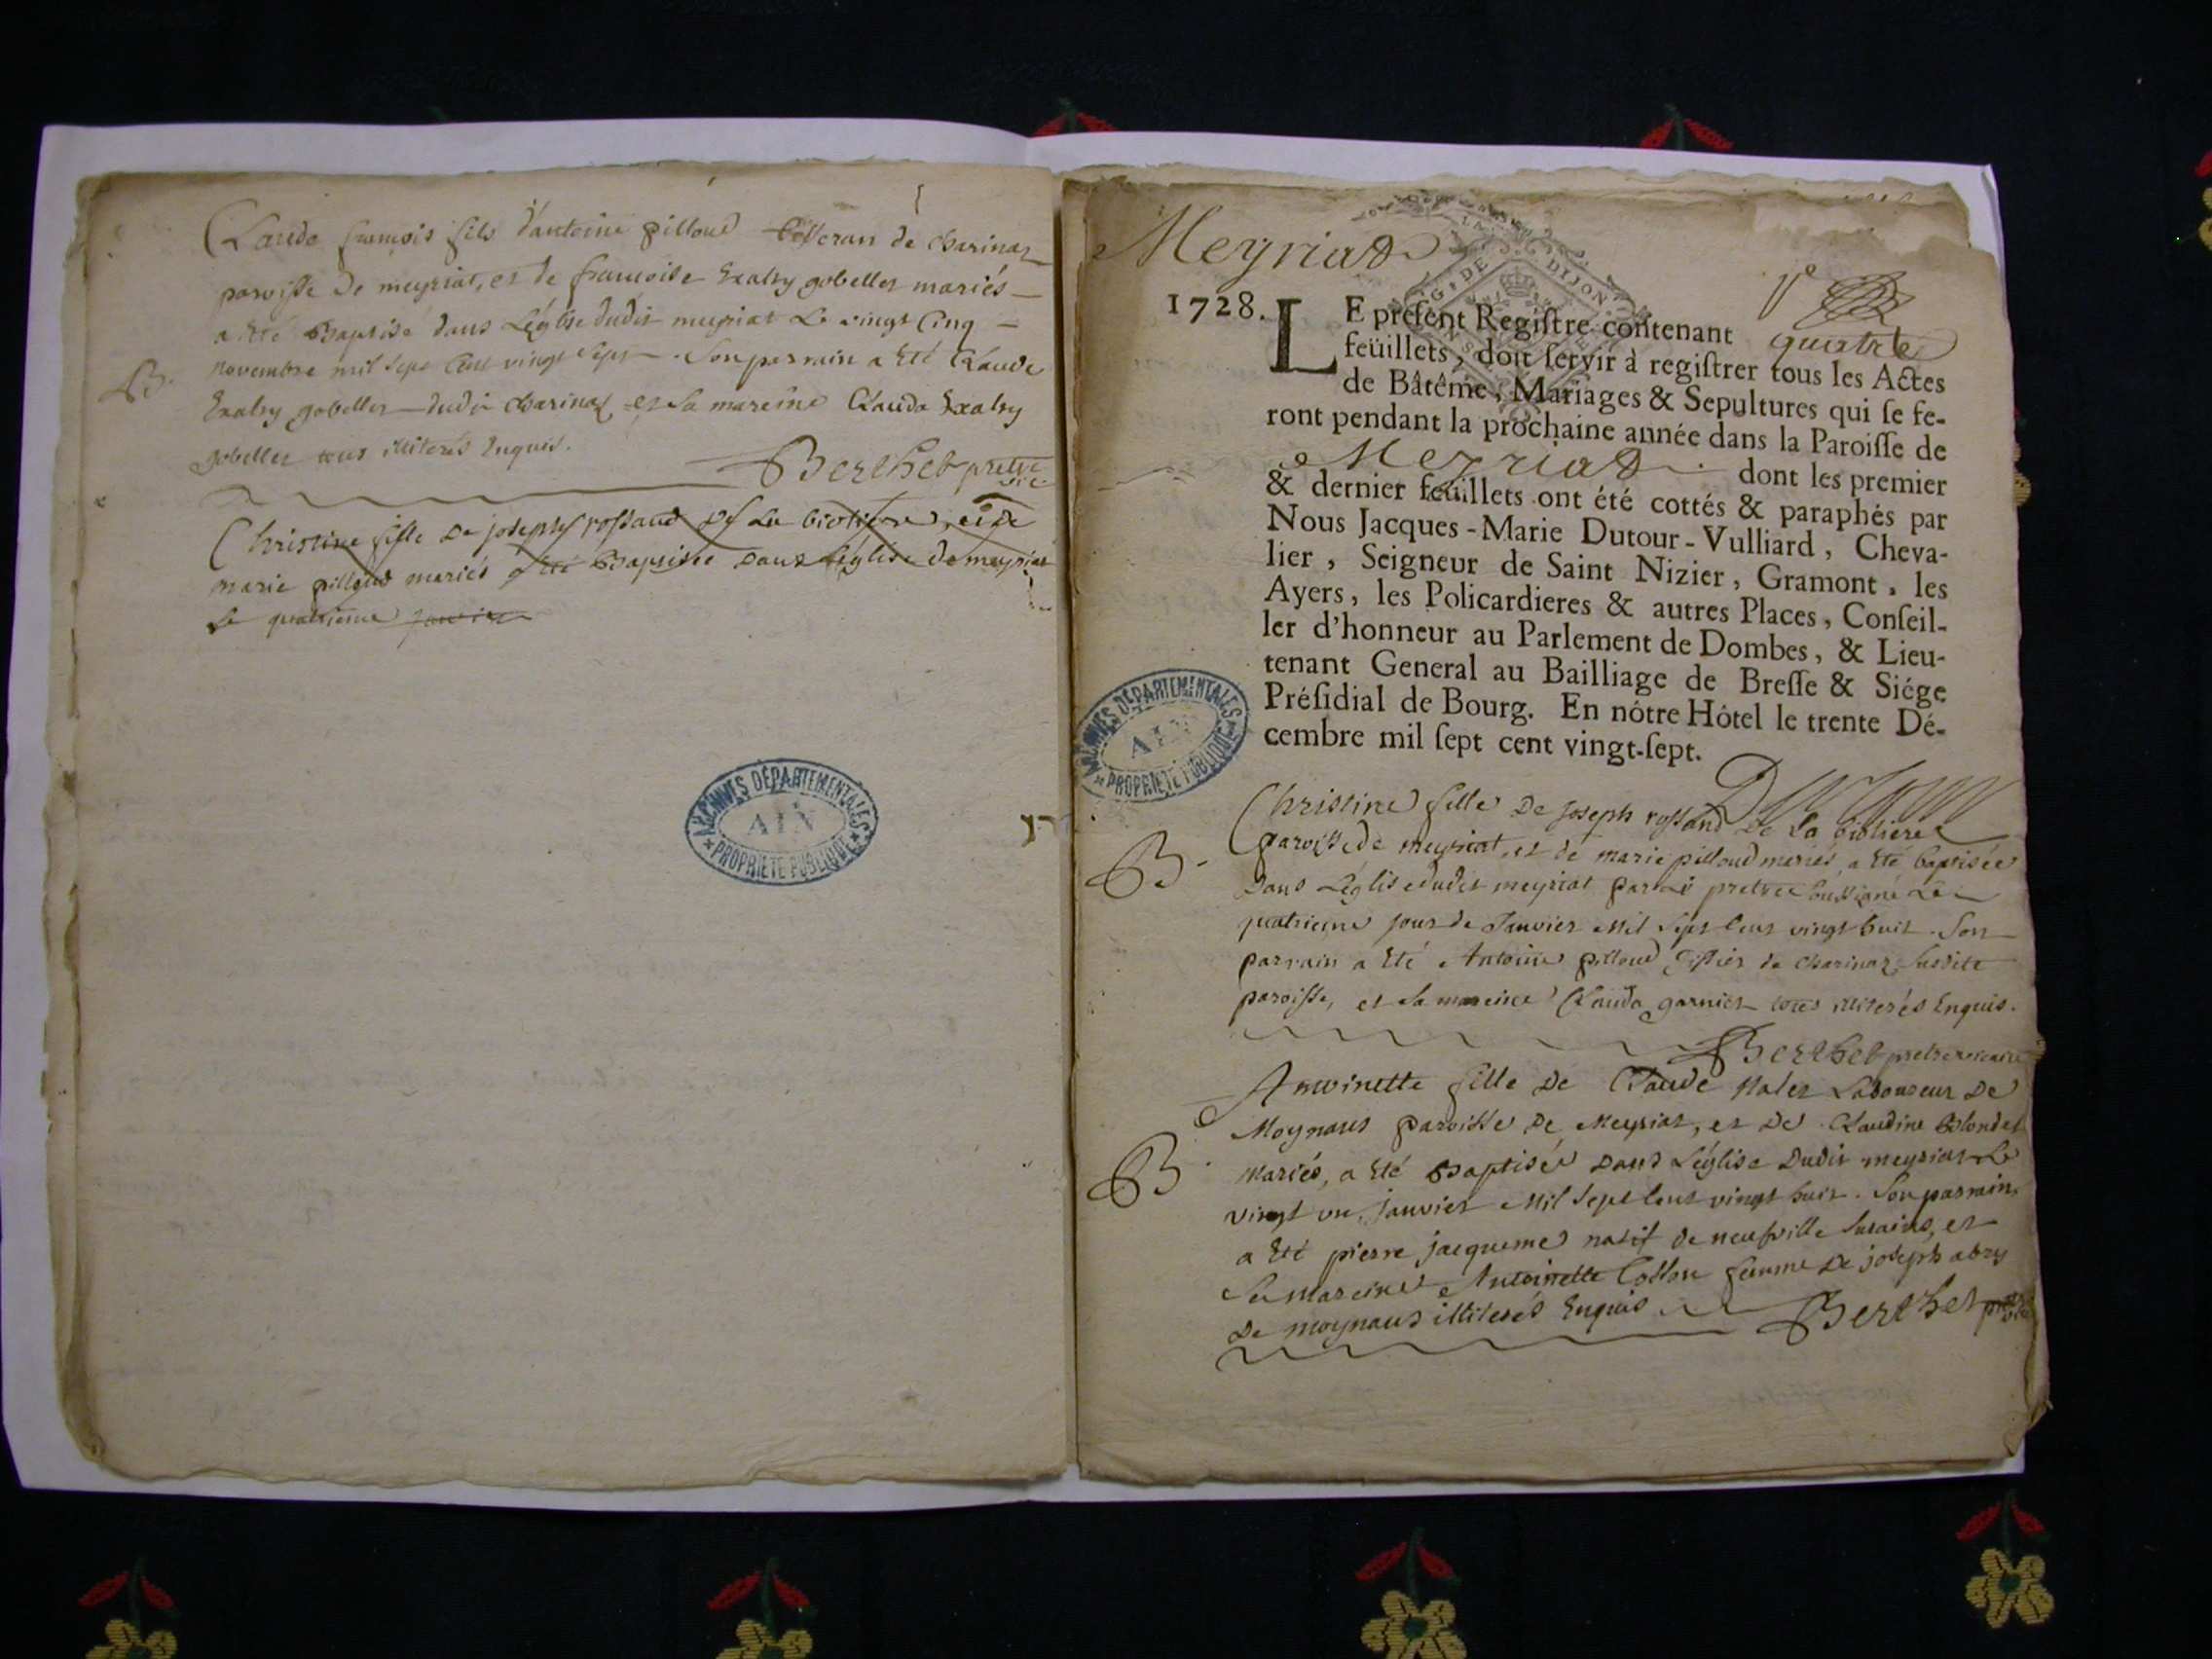 Claude françois fils d'antoine pilloud de charinaz
paroisse de meyriat, et de francoise gobellet mariés
a eté Baptisé dans L'église dudit meyriat Le vingt Cinq
novembre mil sept Cent vingt sept. Son parrain a Eté Claude
B.
gobellet dudit charinaz et sa mareine Clauda
gobellet tous illiterés Enquis.
Berthet pretre vic.
Christine fille De joseph rossand De La et De
marie pilloud mariés a eté Baptisée dans L'église de meyriat
Le quatrieme janvier
ARCHIVES DÉPARTEMENTALES
AIN
PROPRIÉTÉ PUBLIQUE
Meyriat
G. DE DIJON
1728.
LE present Registre contenant quatre
feüillets, doit servir à registrer tous les Actes
de Bâtême, Mariages & Sepultures qui se fe-
ront pendant la prochaine année dans la Paroisse de
Meyriat dont les premier
& dernier feuillets ont été cottés & paraphés par
Nous Jacques-Marie Dutour-Vulliard, Cheva-
lier, Seigneur de Saint Nizier, Gramont, les
Ayers, les Policardieres & autres Places, Conseil-
ler d'honneur au Parlement de Dombes, & Lieu-
tenant General au Bailliage de Bresse & Siége
Présidial de Bourg. En nôtre Hôtel le trente Dé-
cembre mil sept cent vingt-sept.
ARCHIVES DÉPARTEMENTALES
AIN
PROPRIÉTÉ PUBLIQUE
Christine fille De joseph rossand De La
B.
paroisse de meyriat, et de marie pilloud mariés, a eté baptisée
Dans L'église dudit meyriat par Le pretre soussigné Le
quatrieme jour de Janvier Mil Sept Cent vingt huit. Son
parrain a Eté Antoine pilloud de charinaz susdite
paroisse, et sa mareine Clauda garnier tous illiterés Enquis.
Berthet pretre vicaire
Antoinette fille De Claude Laboureur De
Moynans paroisse De Meyriat, et De Claudine Blondet
B
Mariés, a Eté Baptisée Dans L'église Dudit meyriat Le
vingt un janvier Mil Sept Cent vingt huit. Son parrain
a Eté pierre jacqueme natif de neufville Surains, et
Sa Mareine Antoinette femme De joseph abry
De moynans illiterés Enquis
Berthet